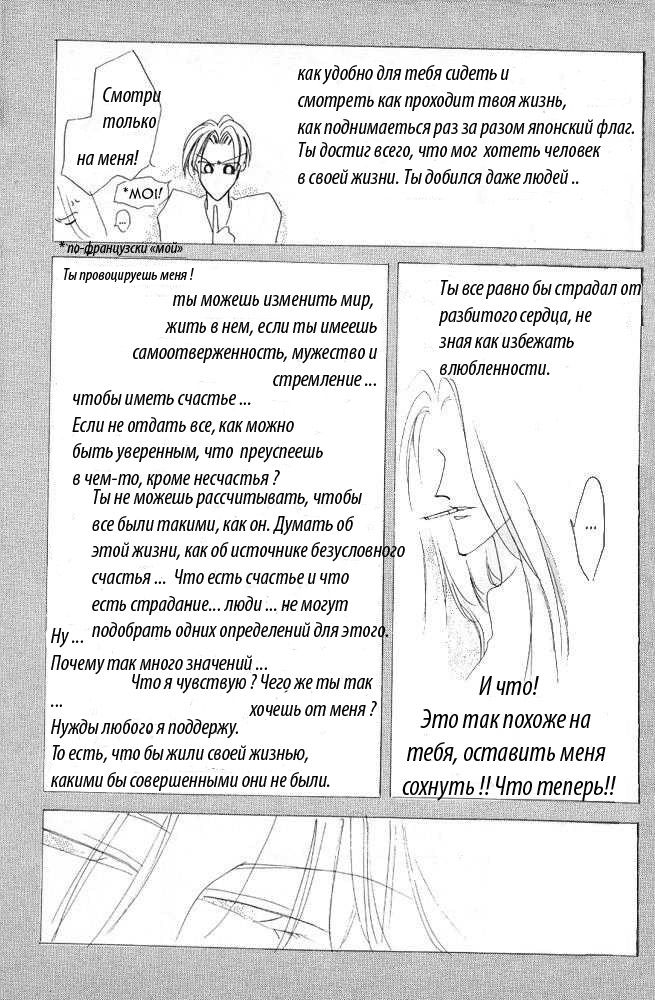 Смотри
только
на меня!
*MOI!
...
как удобно для тебя сидеть и
смотреть как проходит твоя жизнь,
как поднимаеться раз за разом японский флаг.
Ты достиг всего, что мог хотеть человек
в своей жизни. Ты добился даже людей ..
* по-французски «мой»
Ты провоцируешь меня !
ты можешь изменить мир,
жить в нем, если ты имеешь
самоотверженность, мужество и
стремление ...
чтобы иметь счастье ...
Если не отдать все, как можно
быть уверенным, что преуспеешь
в чем-то, кроме несчастья ?
Ты не можешь рассчитывать, чтобы
все были такими, как он. Думать об
этой жизни, как об источнике безусловного
счастья ... Что есть счастье и что
есть страдание... люди ... не могут
подобрать одних определений для этого.
Ну ...
Почему так много значений ...
Что я чувствую ? Чего же ты так
хочешь от меня ?
...
Нужды любого я поддержу.
То есть, что бы жили своей жизнью,
какими бы совершенными они не были.
Ты все равно бы страдал от
разбитого сердца, не
зная как избежать
влюбленности.
...
И что!
Это так похоже на
тебя, оставить меня
сохнуть !! Что теперь!!